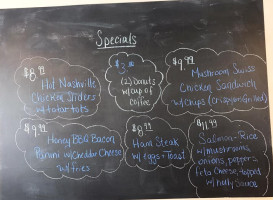 Specials
$8.99
Hot Nashville
Chicken Sliders
w/ tatar tots
$3.00
(2) Donuts
w/ cup of
coffee
$9.99
Mushroom Swiss
Chicken Sandwich
w/ Chips (crispy or grilled)
$9.99
Honey BBQ Bacon
Panini w/ Cheddar Cheese
w/ fries
$8.99
Ham Steak
w/ eggs + toast
$11.99
Salmon-Rice
w/ mushrooms
onions, peppers
feta cheese, topped
w/ sauce